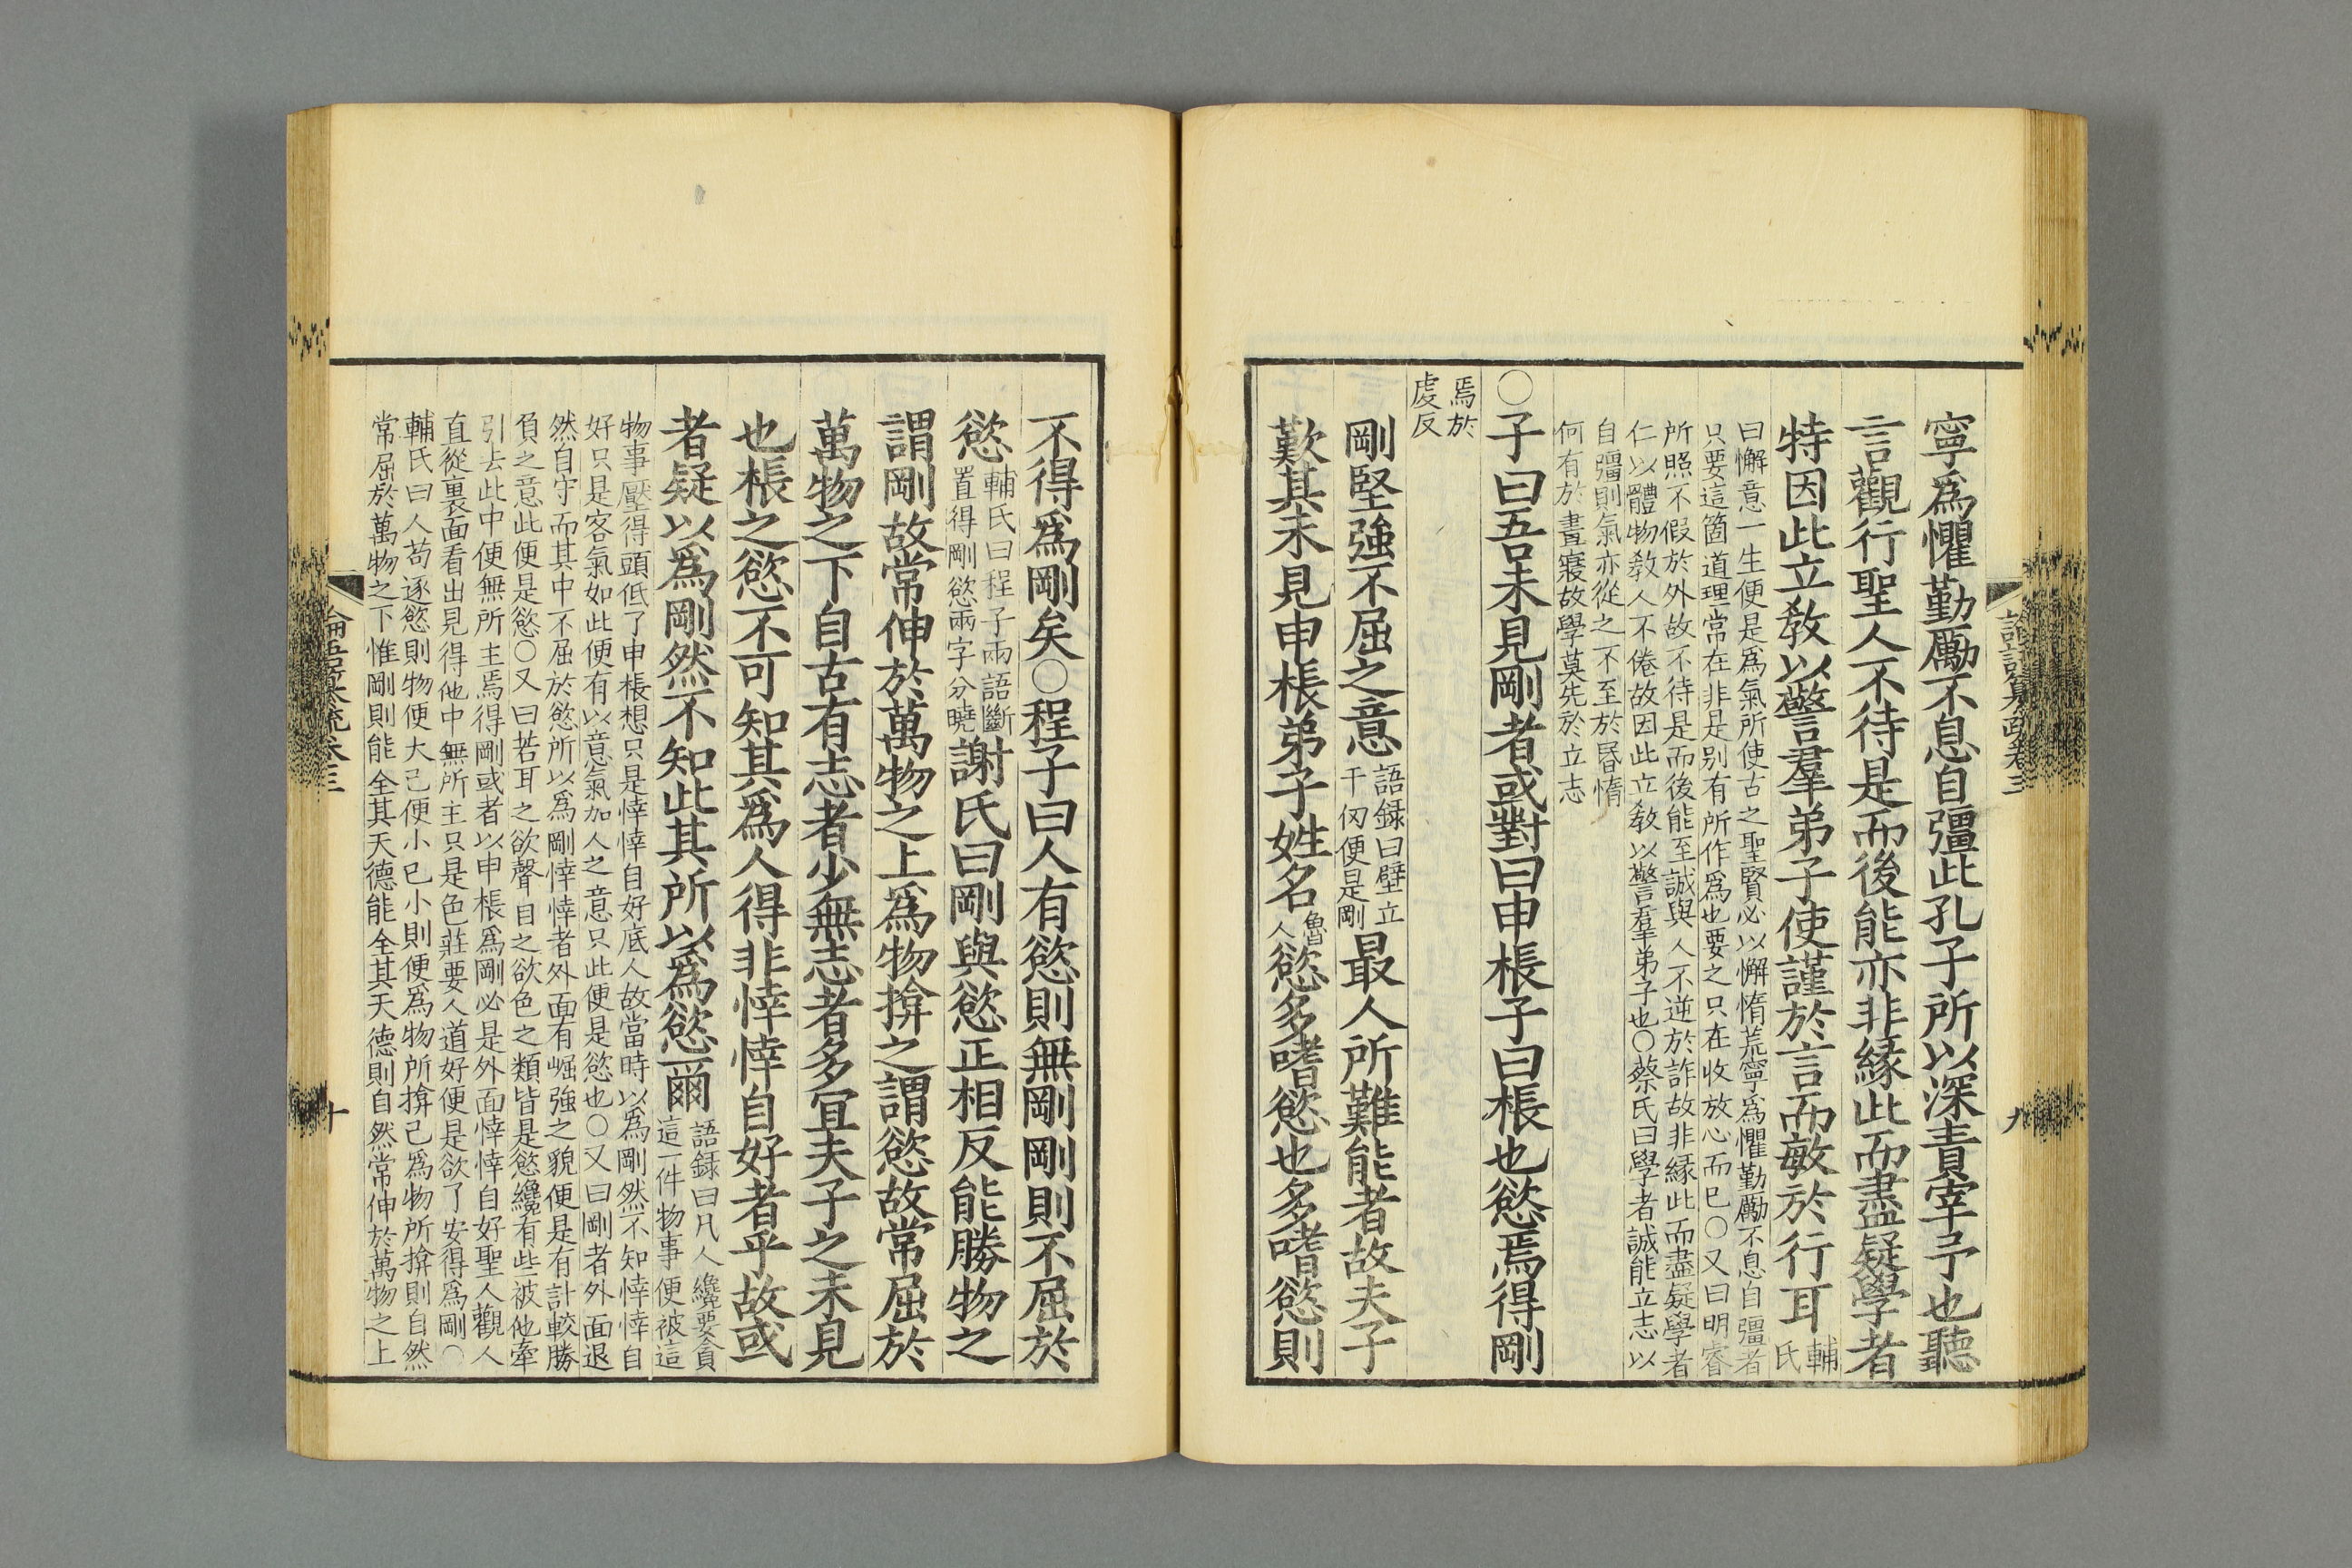 寧爲懼勤勵不息自彊此孔子所以深責宰予也聽
言觀行聖人不待是而後能亦非緣此而盡疑學者
特因此立教以警羣弟子使謹於言而敏於行耳輔
氏
曰懈意一生便是爲氣所使古之聖賢必以懈惰荒寧爲懼勤勵不息自彊者
只要這箇道理常在非是別有所作爲也要之只在收放心而已○又曰明睿
所照不假於外故不待是而後能至誠與人不逆於詐故非緣此而盡疑學者
仁以體物教人不倦故因此立教以警羣弟子也○蔡氏曰學者誠能立志以
自彊則氣亦從之不至於昬惰
何有於晝寢故學莫先於立志
○子曰吾未見剛者或對曰申棖子曰棖也慾焉得剛
焉於
虔反
剛堅強不屈之意語録曰壁立
千仞便是剛最人所難能者故夫子
歎其未見申棖弟子姓名魯
人慾多嗜慾也多嗜慾則
九
不得爲剛矣○程子曰人有慾則無剛剛則不屈於
慾輔氏曰程子兩語斷
置得剛慾兩字分曉謝氏曰剛與慾正相反能勝物之
謂剛故常伸於萬物之上爲物揜之謂慾故常屈於
萬物之下自古有志者少無志者多宜夫子之未見
也棖之慾不可知其爲人得非悻悻自好者乎故或
者疑以爲剛然不知此其所以爲慾爾語録曰凡人纔要貪
這一件物事便被這
物事壓得頭低了申棖想只是悻悻自好底人故當時以爲剛然不知悻悻自
好只是客氣如此便有以意氣加人之意只此便是慾也○又曰剛者外面退
然自守而其中不屈於慾所以爲剛悻悻者外面有崛強之貌便是有計較勝
負之意此便是慾○又曰若耳之欲聲目之欲色之類皆是慾纔有些被他牽
引去此中便無所主焉得剛或者以申棖爲剛必是外面悻悻自好聖人觀人
直從裏面看出見得他中無所主只是色莊要人道好便是欲了安得爲剛○
輔氏曰人苟逐慾則物便大己便小己小則便爲物所揜己爲物所揜則自然
常屈於萬物之下惟剛則能全其天德能全其天德則自然常伸於萬物之上
論語纂疏卷三
十